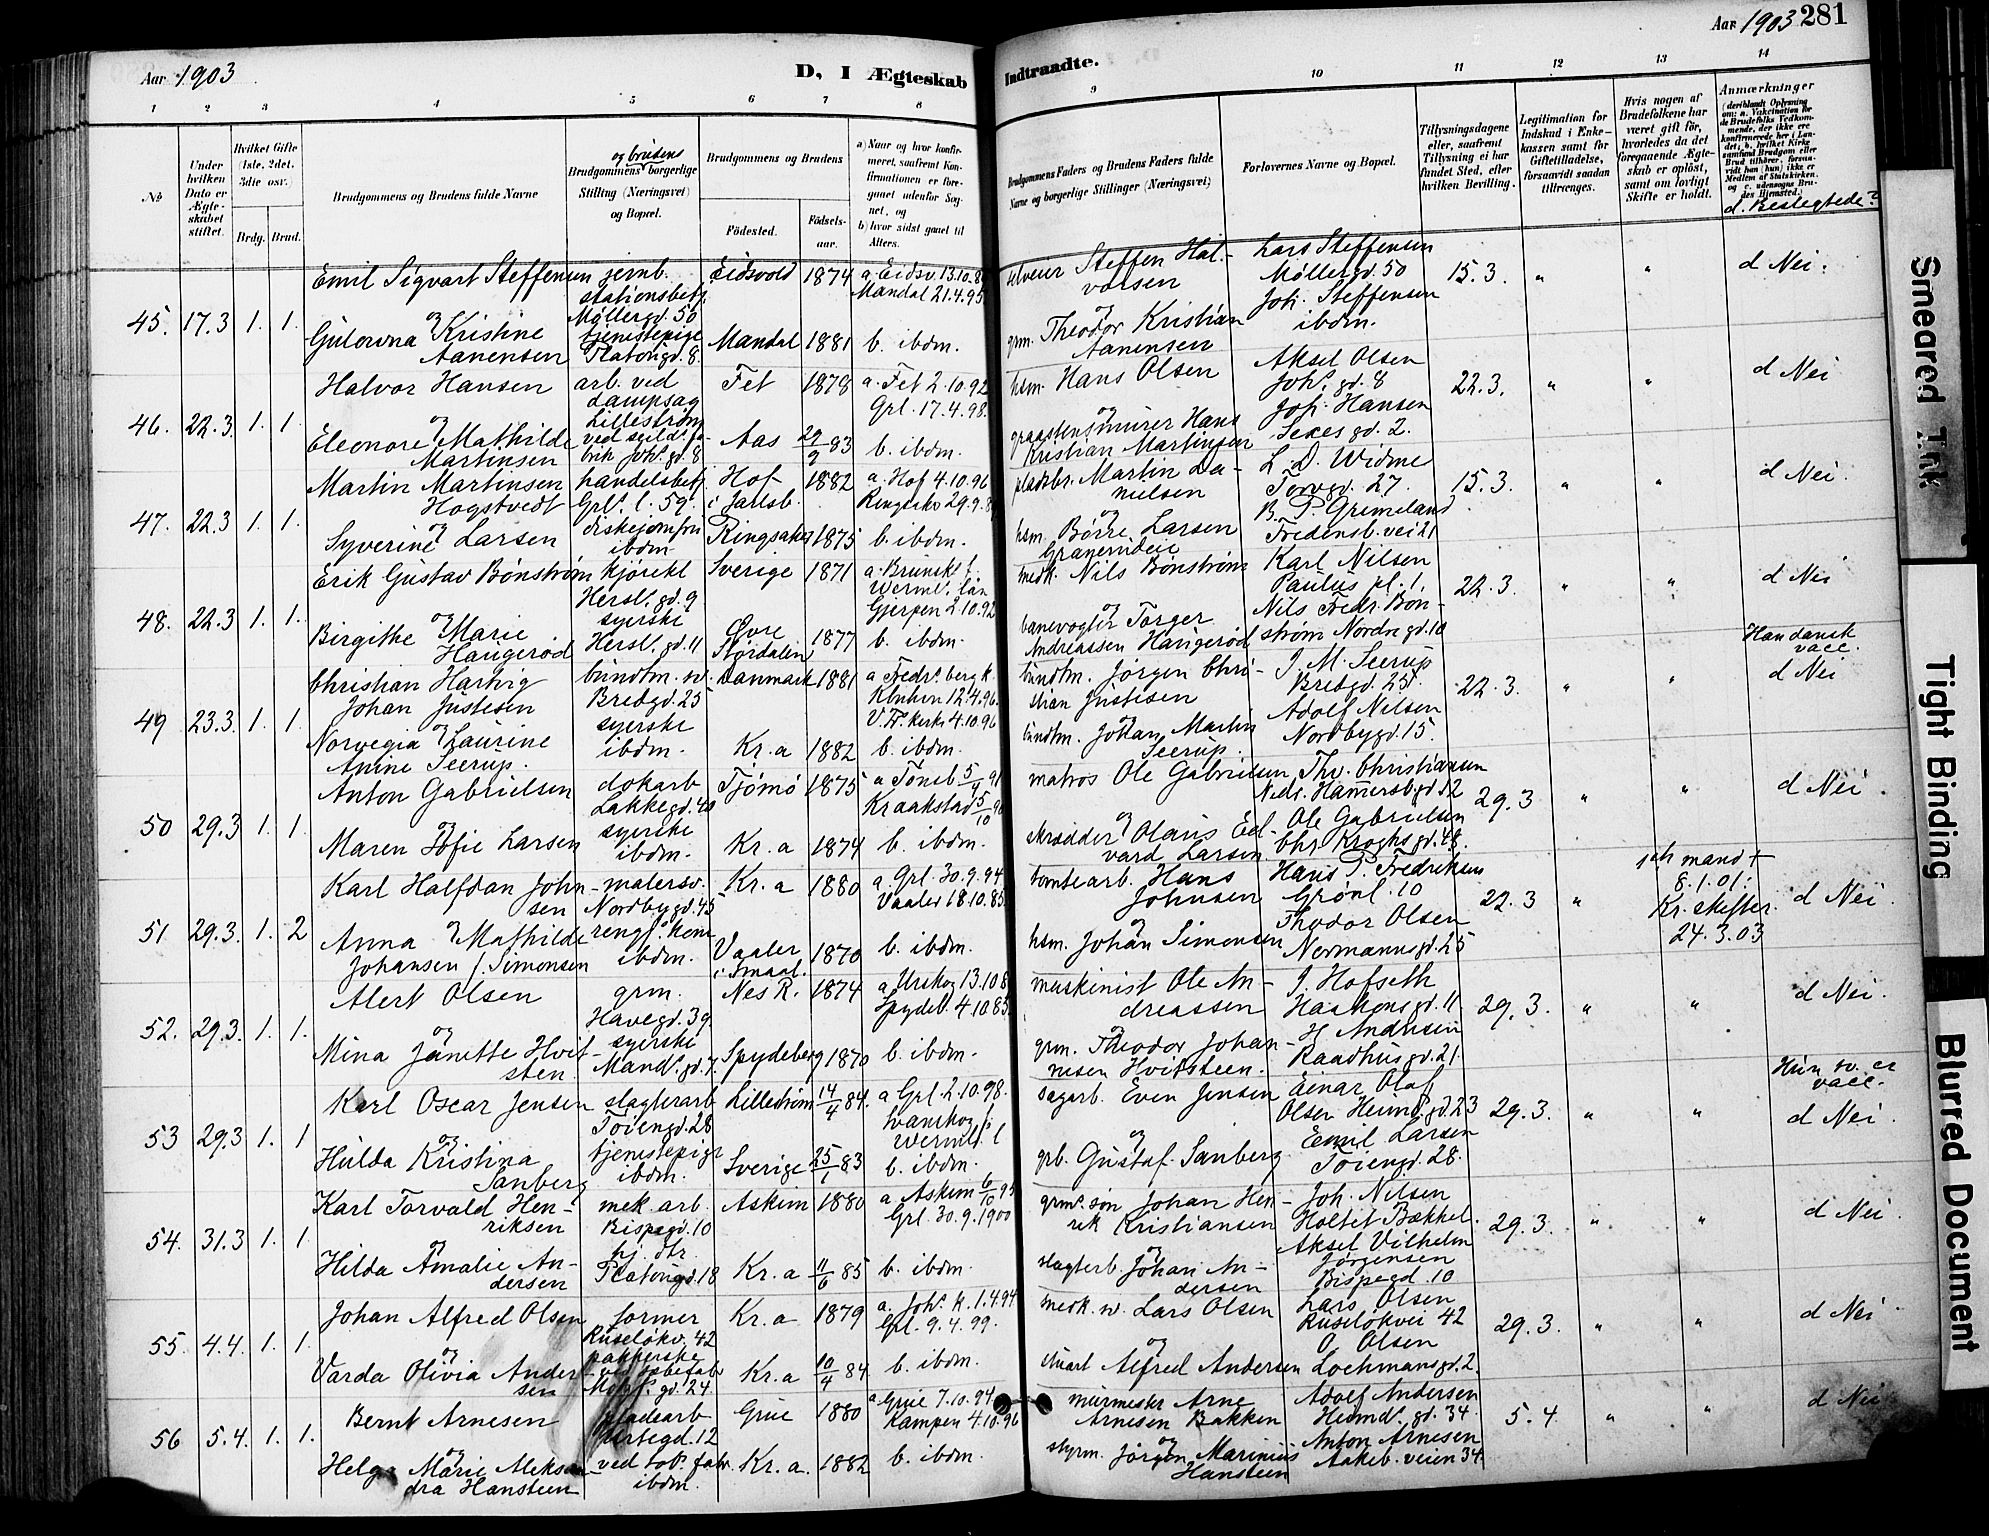 Aar 1903
D, I Ægteskab
Indtraadte.
Aar 1903 281
1 2 3 4 5 6 7 8 9 10 11 12 13 14
No
Under hvilken Dato er Ægteskabet stiftet.
Hvilket Gifte (1ste, 2det, 3die osv.)
Brdg. Brud.
Brudgommens og Brudens fulde Navne
og brudens
Brudgommens borgerlige Stilling (Næringsvei) og Bopæl.
Brudgommens og Brudens
Födested.
Födselsaar.
a) Naar og hvor konfirmeret, saafremt Konfirmationen er foregaaet udenfor Sognet, og
b) hvor sidst gaaet til Alters.
Brudgommens Faders og Brudens Faders fulde Navne og borgerlige Stillinger (Næringsvei)
Forlovernes Navne og Bopæl.
Tillysningsdagene eller, saafremt Tillysning ei har fundet Sted, efter hvilken Bevilling.
Legitimation for Indskud i Enkekassen samt for Giftetilladelse, forsaavidt saadan tiltrænges.
Hvis nogen af Brudefolkene har været gift för, hvorledes da det foregaaende Ægteskab er oplöst, samt om lovligt Skifte er holdt.
Anmærkninger
d. Beslegtede?
45. 17.3 1. 1.
Emil Sigvart Steffensen
jernb. stationsbetj.
Møllergd. 50
Eidsvold 1874
Mandal 21.4.95
selveier Steffen Halvorsen
Lars Steffensen
Møllergd. 50
Joh. Steffensen
ibdm.
15.3. " " d Nei.
og
Gulowna Kristine
Aanensen
tjenestepige
Platougd. 8.
Mandal 1881 b. ibdm.
grm. Theodor Kristian
Aanensen
46. 22.3. 1. 1
Halvor Hansen
arb. ved
dampsag
Lillestrøm
Fet 1878 a. Fet 2.10.92
Grl. 17.4.98.
hsm. Hans Olsen
Aksel Olsen
Johs. gd. 8
Joh. Hansen
Sexes gd. 2.
22.3. " " d Nei
og
Eleonore Mathilde
Martinsen
Aas 29/9 83 b. ibdm.
graastensmurer Hans
Kristian Martinsen
47. 22.3 1. 1.
Martin Martinsen
Hogstvedt
handelsbetj.
Grls. l. 59.
Hof
i Jarlsb.
1882 a. Hof 4.10.96
pladsbr. Martin Danielsen
L. D. Widme
Torvgd. 27.
B. P. Grimeland
Fredensb. vei 21
15.3. " " d Nei.
og
Syverine Larsen
diskejomfru
ibdm
Ringsaker 1875 b. ibdm.
hsm. Børre Larsen
48. 22.3 1. 1.
Erik Gustav Bønstrøm
kjørekl
Hersl. gd. 9
Sverige 1871
Gjerpen 2.10.92
medh. Nils Bønstrøm
Karl Nilsen
Paulus pl. 1.
Nils Fredr. Bønstrøm Nordre gd. 10
22.3. " " d Nei
og
Birgithe Marie
Haugerød
syerske
Hersl. gd. 11
Øvre
Stördalen
1877 b. ibdm.
banevogter Torger
Andreassen Haugerød
49 23.3. 1. 1
Christian Hartvig
Johan Justesen
buntm. sv.
Bredgd. 25
Danmark 1881
V. Fr. kirke 4.10.96
buntm. Jørgen Christian Justesen
J. M. Seerup
Bredgd. 25.
Adolf Nilsen
Nordbygd. 15.
22.3. " "
Han dansk
vacc.
d Nei
og
Norvegia Laurine
Anine Seerup.
syerske
ibdm.
Kr.a 1882 b. ibdm.
buntm. Johan Martin
Seerup.
50 29.3 1. 1
Anton Gabrielsen
dokarb
Lakkegd. 40
Tjømø 1875
matros Ole Gabrielsen
Thv. Christiansen
Ole Gabrielsen
Chr. Kroghs gd. 48.
29.3 " " d Nei.
og
Maren Sofie Larsen
syerske
ibdm.
Kr.a 1874 b. ibdm.
skrædder Olaus Edvard Larsen
51 29.3. 1. 2
Karl Halfdan Johnsen
malersv.
Nordbygd. 45
Kr.a 1880 a. Grl. 30.9.94
tomtearb. Hans
Johnsen
Hans P. Fredriksen
Grønl. 10
Thodor Olsen
Normannsgd. 25
22.3 "
1ste mand †
8.1.01.
Kr. skifter.
24.3.03
d Nei.
og
Anna Mathilde
Johansen f. Simonsen
ibdm.
Vaaler
i Smaal.
1870 b. ibdm.
hsm. Johan Simonsen
52. 29.3. 1. 1.
Alert Olsen
grm.
Havegd. 39
Nes R. 1874
Spydeb. 4.10.85
maskinist Ole Andreassen
J. Hofseth
Haakons gd. 11.
H. Andresen
Raadhusgd. 21.
29.3. " " d Nei.
og
Mina Janette Hvitsten
syerske
Mands. gd. 7.
Spydeberg 1870 b. ibdm.
grm. Theodor Johannesen Hvitsteen.
53 29.3 1. 1
Karl Oscar Jensen
slagterarb
Töiengd. 28
Lillestrøm 14/4 84. a Grl. 2.10.98.
sagarb. Even Jensen
Einar Olaf
Olsen Heimd. gd. 23
Emil Larsen
Töiengd. 28.
29.3. " "
Hun sv. er
vacc.
d Nei.
og
Hulda Kristina
Sanberg
tjenestepige
ibdm.
Sverige 25/1 83 b. ibdm.
grb. Gustaf Sanberg
54. 31.3 1. 1.
Karl Torvald Henriksen
mek. arb.
Bispegd. 10
Askim 1880 a Askim 6/10 95
Grl. 30.9.1900
grms. søn Johan Henrik Kristiansen
Joh. Nilsen
Holtet Bækkel.
Aksel Vilhelm
Jørgensen
Bispegd. 10
29.3. " " d Nei.
og
Hilda Amalie Andersen
hj. dtr.
Platougd. 18
Kr.a 11/6 85 b. ibdm.
slagterb. Johan Andersen
55. 4.4. 1. 1.
Johan Alfred Olsen
former
Ruseløkv. 42
Kr.a 1879 a. Johs. k. 1.4.94
Grl. 9.4.99.
medh. sv. Lars Olsen
Lars Olsen
Ruseløkvei 42
O. Olsen
Lochmansgd. 2.
29.3. " " d Nei
og
Varda Olivia Andersen
pakkerske
Kr.a 10/4 84 b. ibdm.
stuart Alfred Andersen
56 5.4. 1. 1.
Bernt Arnesen
Urtegd. 12
Grue 1880 a Grue 7.10.94
Kampen 4.10.96
murmester Arne
Arnesen Bakken
Adolf Andersen
Heimd. gd. 34.
Anton Arnesen
Aakeb. veien 34.
5.4. " " d Nei
og
Helga Marie Aleksandra Hansteen
ved tob. fabr.
ibdm.
Kr.a. 1882 b. ibdm.
styrm. Jörgen Marinius
Hansteen
Smeared Ink
Tight Binding
Blurred Document